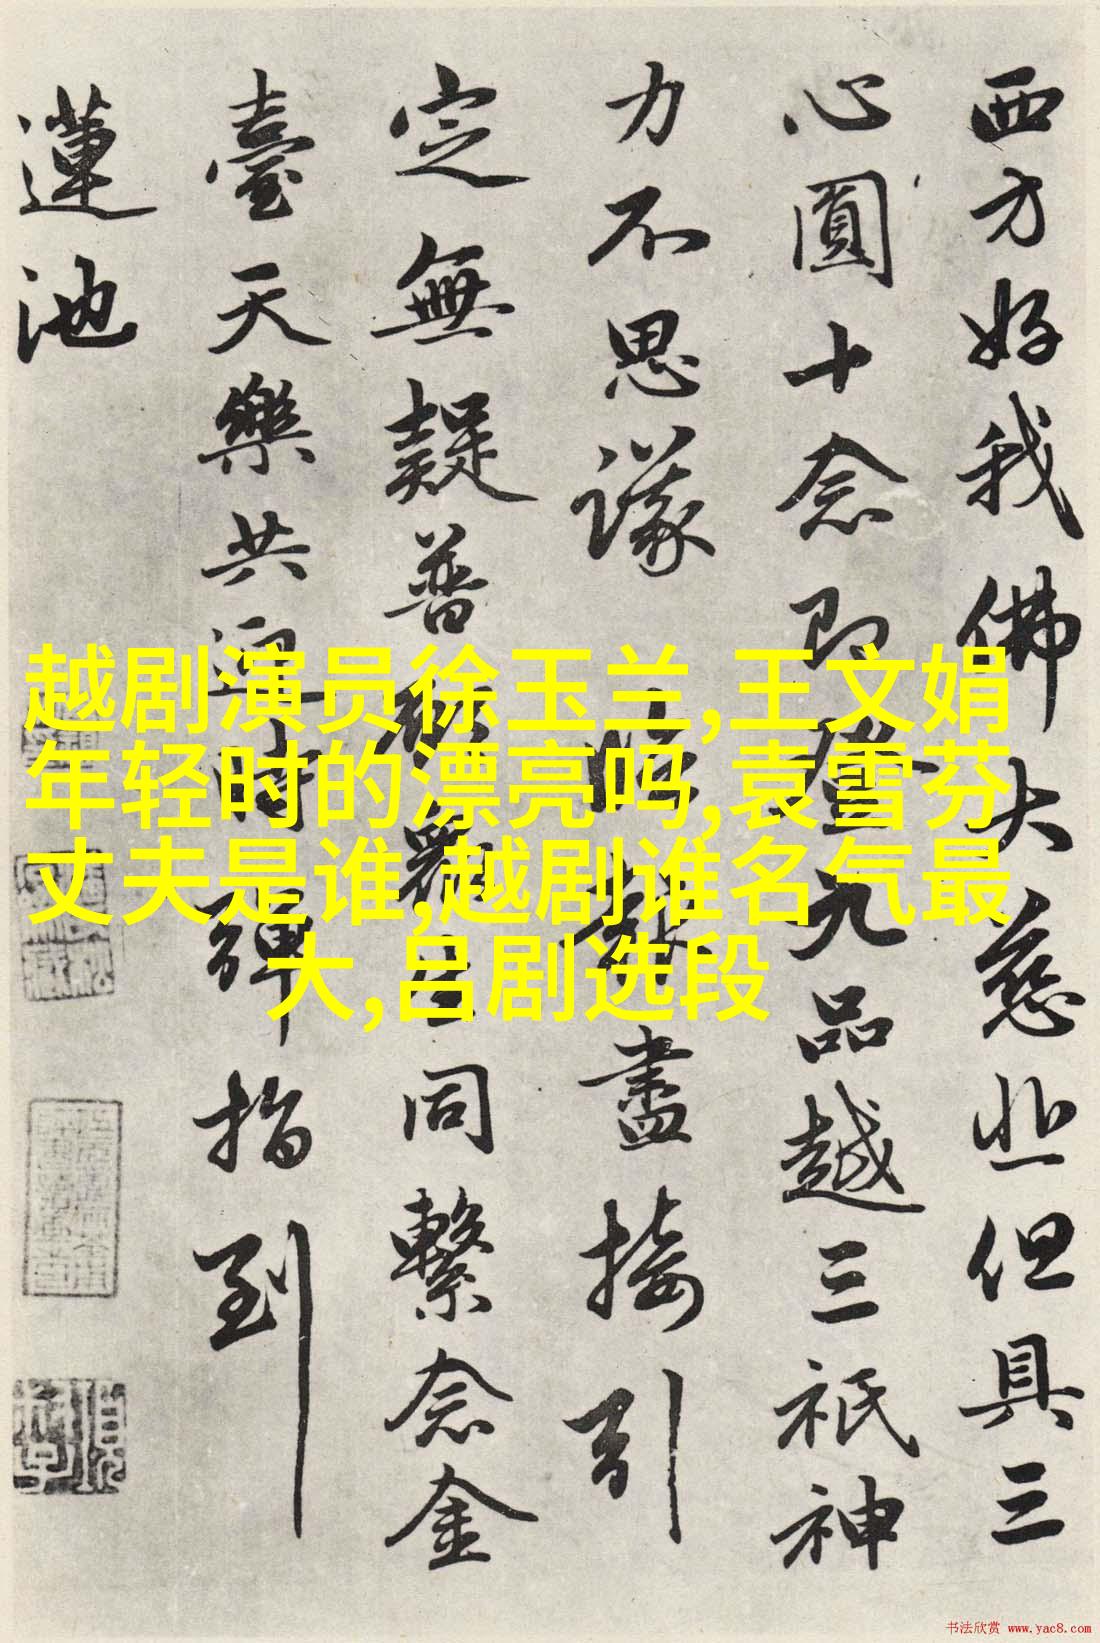 西方好我佛大慈悲但具三
心圓十念即登九品越三祇神
力不思議臨報盡接引
定無疑普勸眾生同繫念金
臺天樂共迎時彈指到
蓮池
越剧演员徐玉兰,王文娟
年轻时的漂亮吗,袁雪芬
丈夫是谁,越剧谁名气最
大,吕剧选段
书法欣赏 www.yac8.com